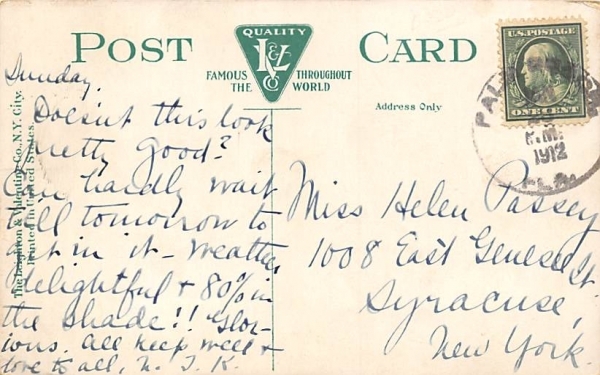 POST CARD
QUALITY
L & V Co
FAMOUS THROUGHOUT
THE WORLD
Address Only
U.S. POSTAGE
ONE CENT
PALM
P.M.
1912
FLA.
The Leighton & Valentine Co., N.Y. City.
Printed in United States.
Sunday.
Doesn't this look
pretty good?
Can hardly wait
till tomorrow to
get in it - Weather
delightful & 80% in
the shade!! Glor-
ious. All keep well &
love to all, N. J. K.
Miss Helen Passey
1008 East Genesee St.
Syracuse,
New York.